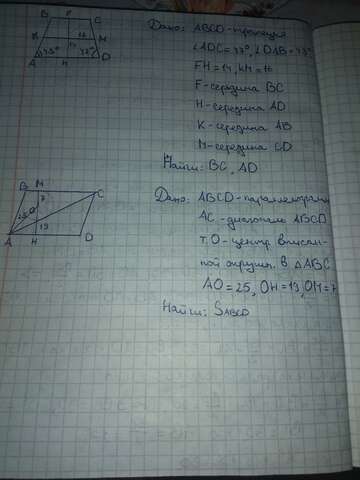 B F C
K 16 M
14
43° 47°
A H D
Дано: ABCD - трапеция
∠ADC = 47°, ∠DAB = 43°
FH = 14, KM = 16
F - середина BC
H - середина AD
K - середина AB
M - середина CD
Найти: BC, AD
B M C
7
25 O
19
A H D
Дано: ABCD - параллелограмм
AC - диагональ ABCD
т.O - центр вписан-
ной окружн. в △ABC
AO = 25, OH = 19, OM = 7
Найти: SABCD